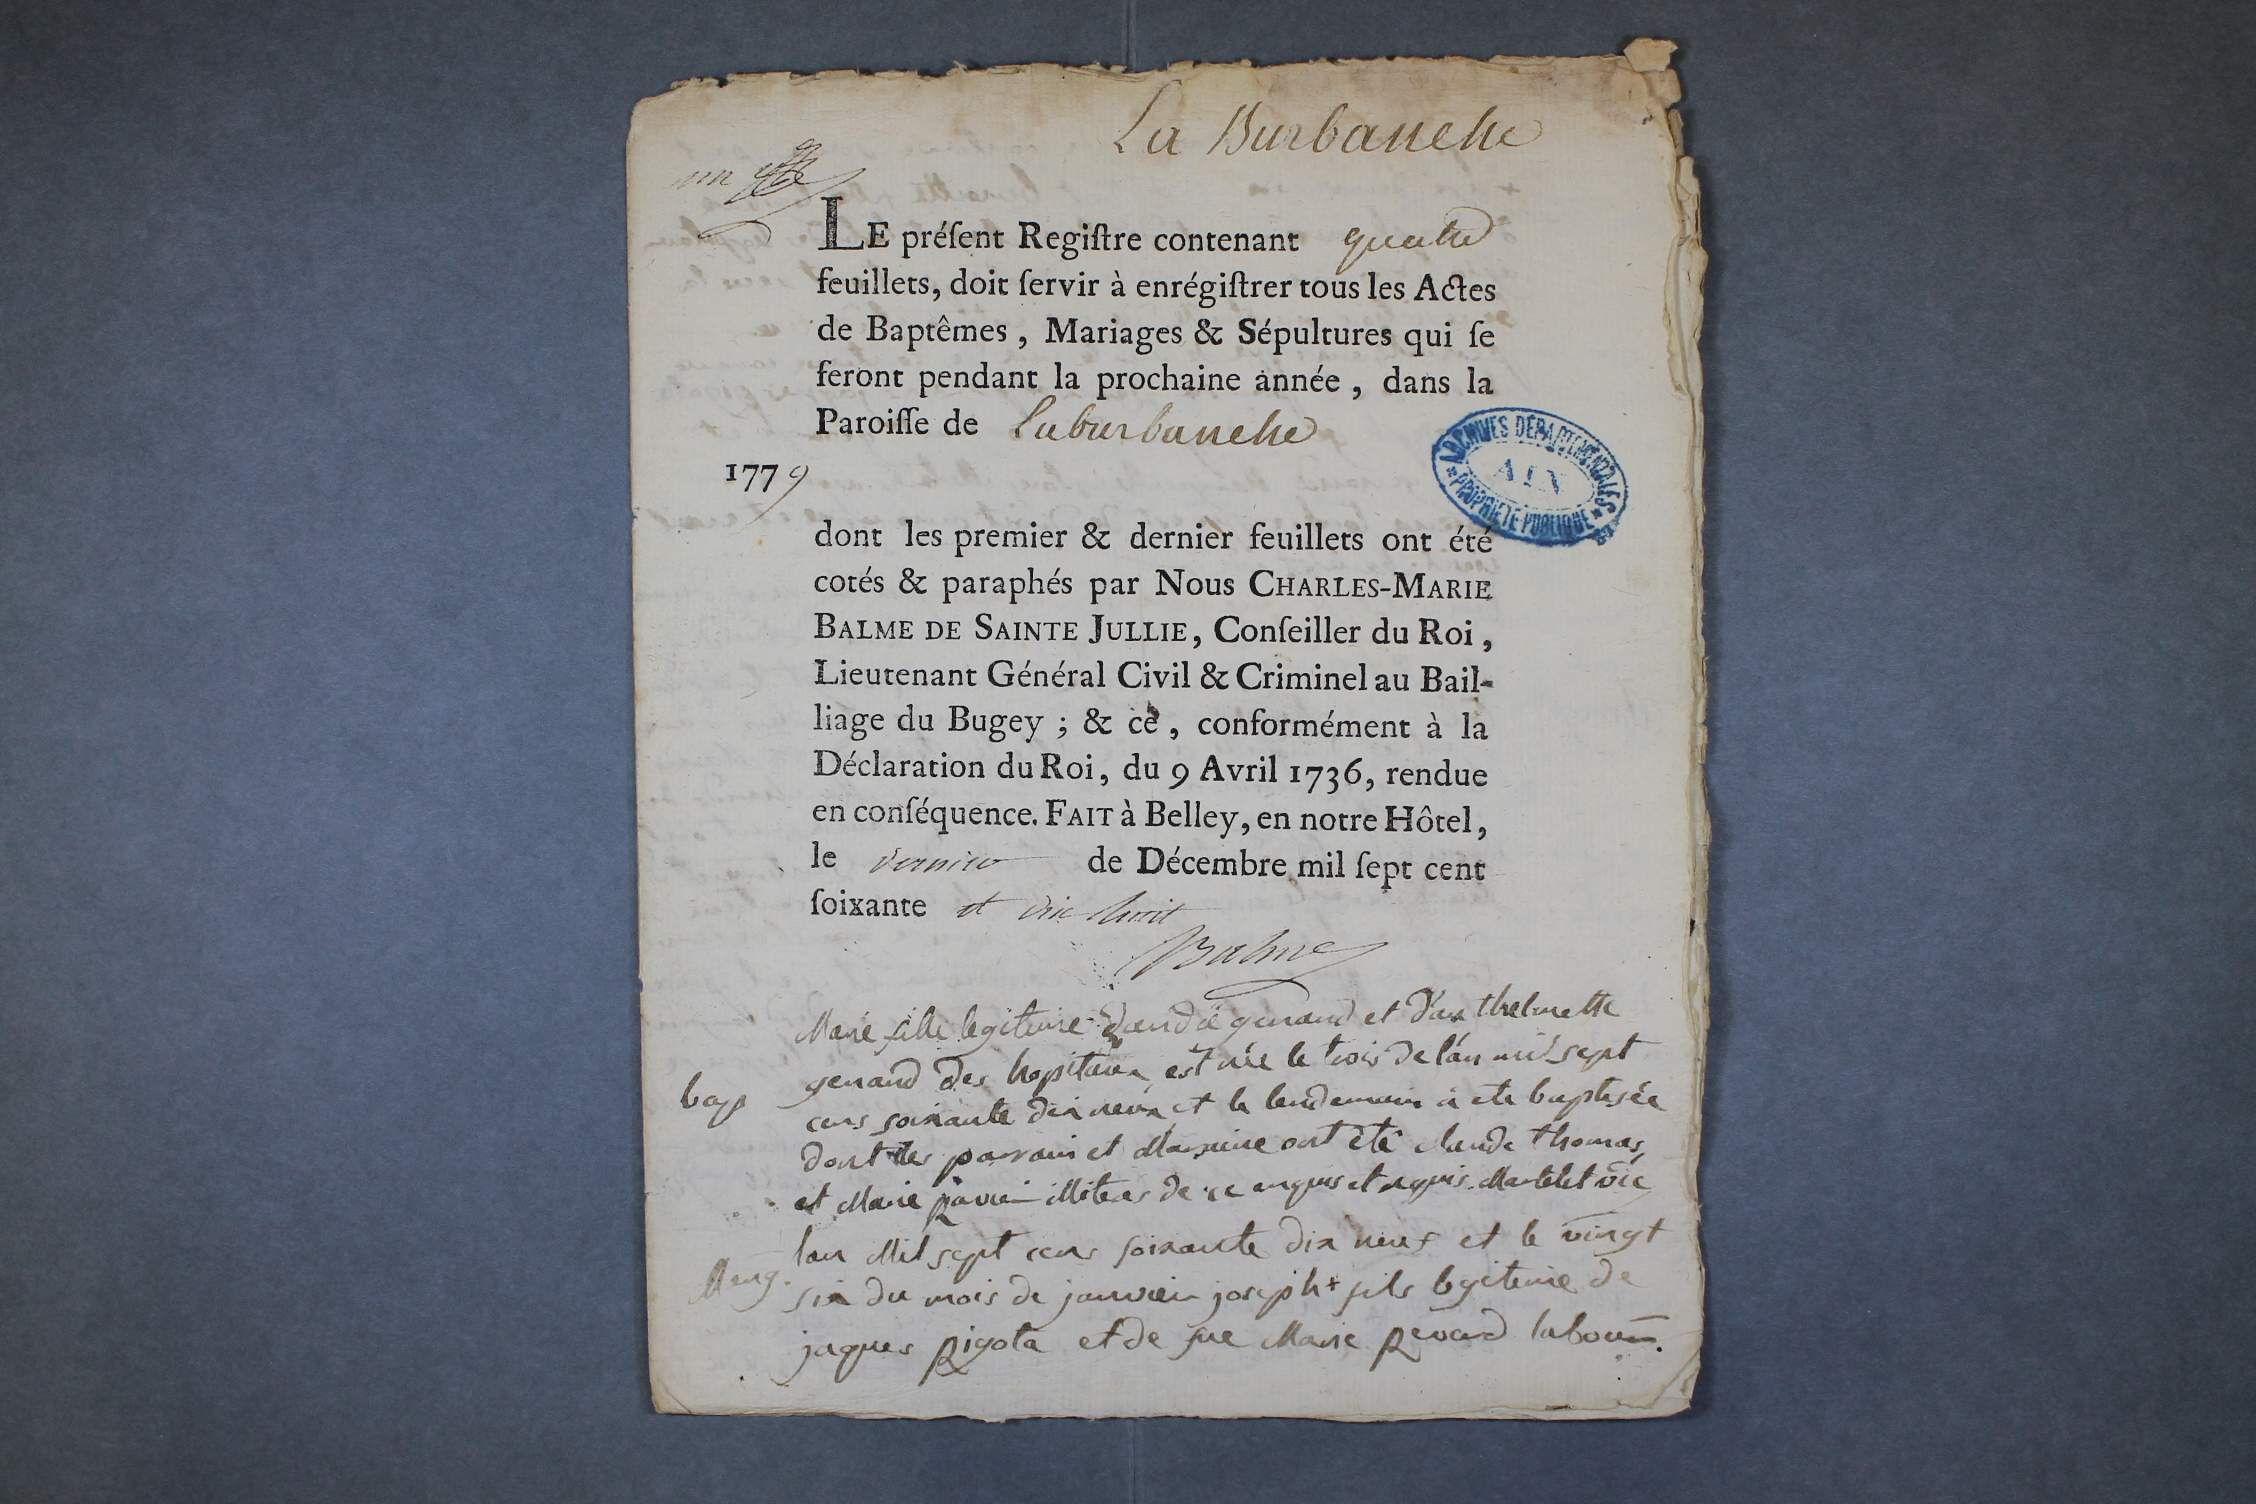 La Burbanche
LE préſent Regiſtre contenant quatre
feuillets, doit ſervir à enrégiſtrer tous les Actes
de Baptêmes, Mariages & Sépultures qui ſe
feront pendant la prochaine année, dans la
Paroiſſe de Laburbanche
1779
ARCHIVES DÉPARTEMENTALES
AIN
* PROPRIÉTÉ PUBLIQUE *
dont les premier & dernier feuillets ont été
cotés & paraphés par Nous CHARLES-MARIE
BALME DE SAINTE JULLIE, Conſeiller du Roi,
Lieutenant Général Civil & Criminel au Bail-
liage du Bugey; & ce, conformément à la
Déclaration du Roi, du 9 Avril 1736, rendue
en conſéquence. FAIT à Belley, en notre Hôtel,
le dernier de Décembre mil ſept cent
ſoixante et dix huit
Balme
Marie fille legitime genand et
bap
genand des hopitaux est née le trois de l'an mil sept
cens soixante dix neuf et le lendemain a ete baptisée
dont les parrain et Marraine ont été claude thomas
et Marie de ce enquis et requis Martelet
lan Mil sept cens soixante dix neuf et le vingt
Marg.
six du mois de janvier joseph + fils legitime de
jaques pigota et de fue Marie